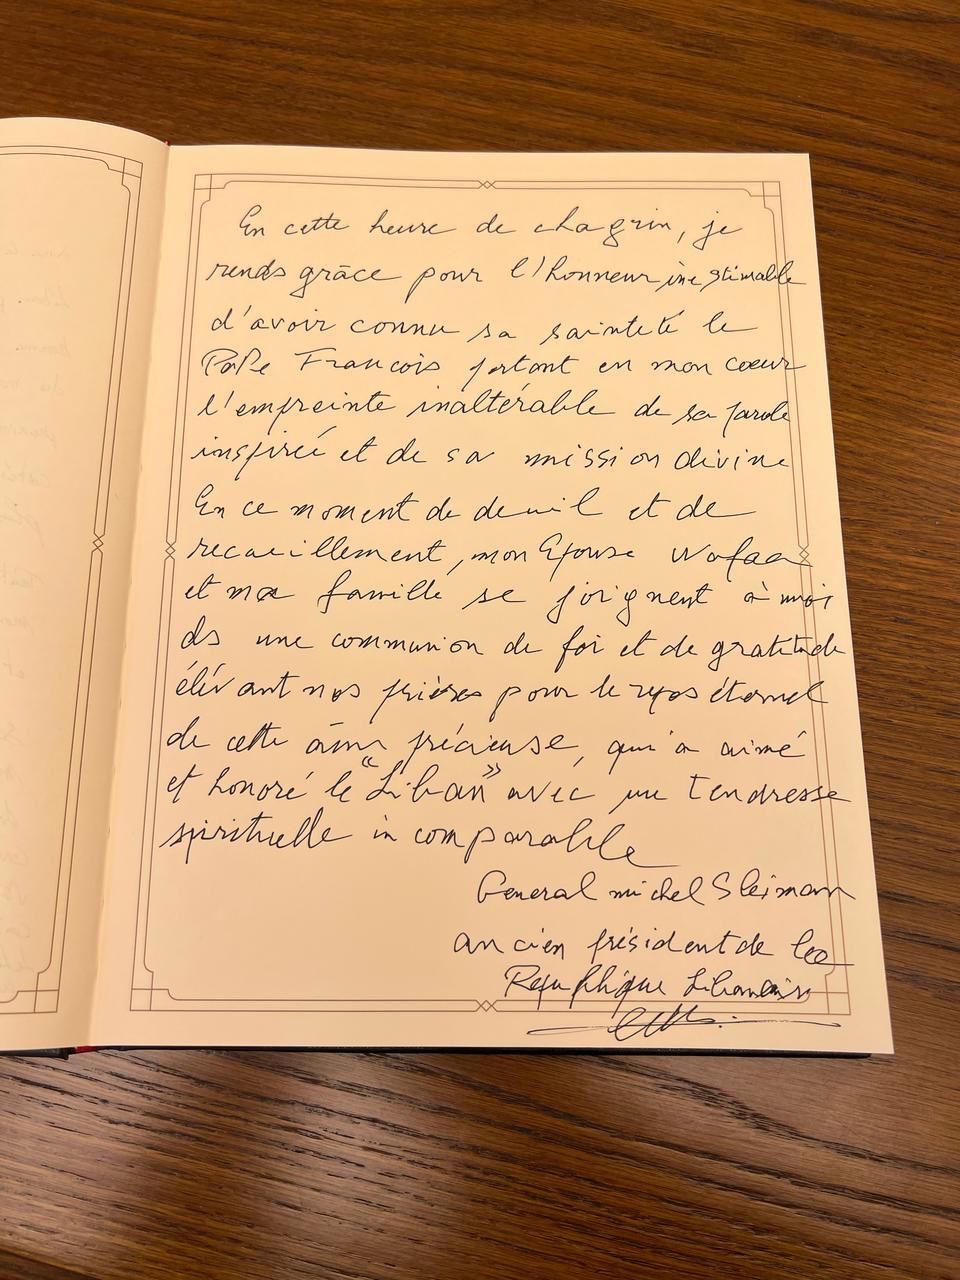 En cette heure de chagrin, je
rends grâce pour l'honneur inestimable
d'avoir connu sa sainteté le
Pape François portant en mon coeur
l'empreinte inaltérable de sa parole
inspirée et de sa mission divine
En ce moment de deuil et de
recueillement, mon Epouse Wafaa
et ma famille se joignent à moi
ds une communion de foi et de gratitude
élevant nos prières pour le repos éternel
de cette âme précieuse, qui a aimé
et honoré le "Liban" avec une tendresse
spirituelle incomparable
General michel Sleiman
ancien président de la
Republique Libanaise